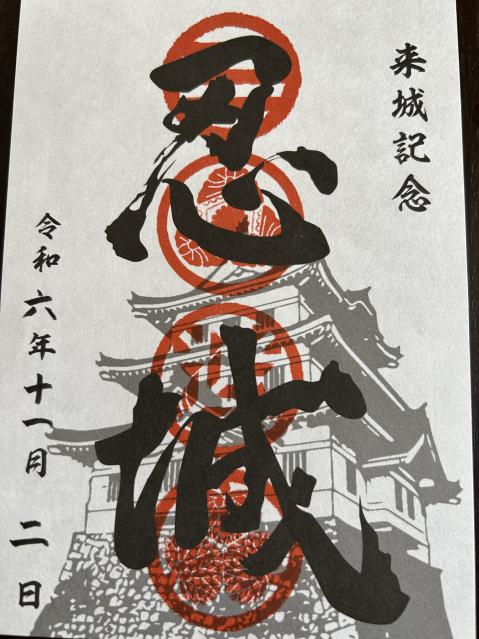 来城記念
忍城
令和六年十一月二日